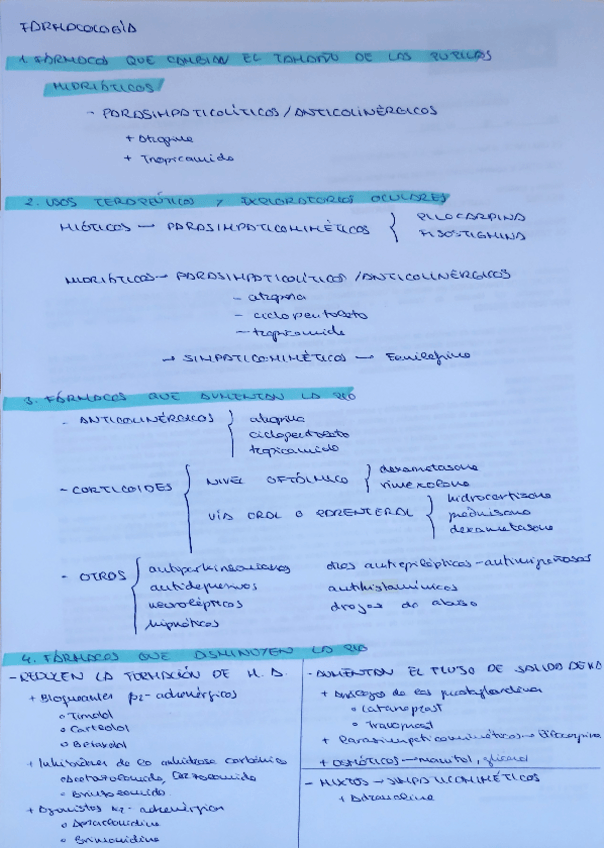 FARMACOLOGÍA
1. FÁRMACOS QUE CAMBIAN EL TAMAÑO DE LAS PUPILAS
MIDRIÁTICOS
- PARASIMPATICOLÍTICOS / ANTICOLINÉRGICOS
+ Atropina
+ Tropicamida
2. USOS TERAPEÚTICOS Y EXPLORATORIOS OCULARES
MIÓTICOS → PARASIMPATICOMIMÉTICOS { PILOCARPINA
FISOSTIGMINA
MIDRIÁTICOS → PARASIMPATICOLÍTICOS / ANTICOLINÉRGICOS
- atropina
- ciclopentolato
- tropicamida
→ SIMPATICOMIMÉTICOS → Fenilefrina
3. FÁRMACOS QUE AUMENTAN LA PIO
- ANTICOLINÉRGICOS { atropina
ciclopentolato
tropicamida
- CORTICOIDES { NIVEL OFTÁLMICO } dexametasona
rimexolona
VÍA ORAL O PARENTERAL } hidrocortisona
prednisona
dexametasona
- OTROS { antiparkinsonianos
antidepresivos
neurolépticos
hipnóticos
antiepilépticos - antimigrañosos
antihistamínicos
drogas de abuso
4. FÁRMACOS QUE DISMINUYEN LA PIO
- REDUCEN LA FORMACIÓN DE H.A.
+ Bloqueantes β2-adrenérgicos
o Timolol
o Carteolol
o Betaxolol
+ Inhibidores de la anhidrasa carbónica
o Acetazolamida, Dorzolamida
o Brinzolamida
+ Agonistas α2-adrenérgicos
o Apraclonidina
o Brimonidina
- AUMENTAN EL FLUJO DE SALIDA DE HA
+ Análogos de las prostaglandinas
o Latanoprost
o Travoprost
+ Parasimpaticomiméticos → Pilocarpina
+ OSMÓTICOS → manitol, glicerol
- MIXTOS → SIMPATICOMIMÉTICOS
+ Adrenalina